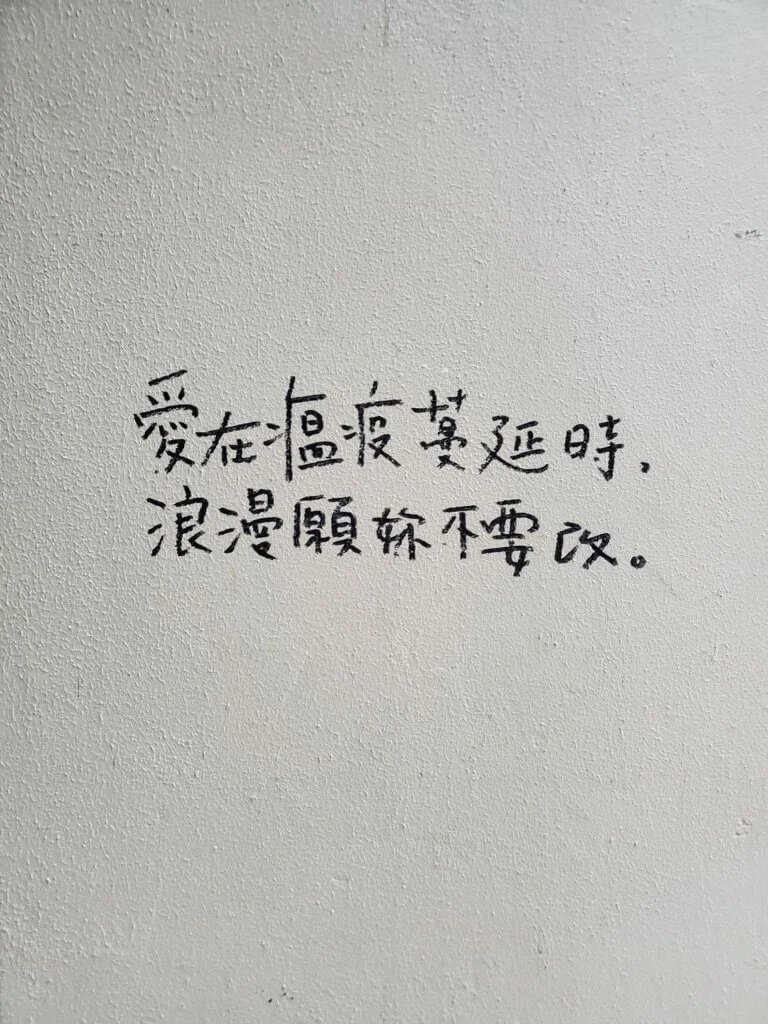 愛在瘟疫蔓延時,
浪漫願妳不要改。